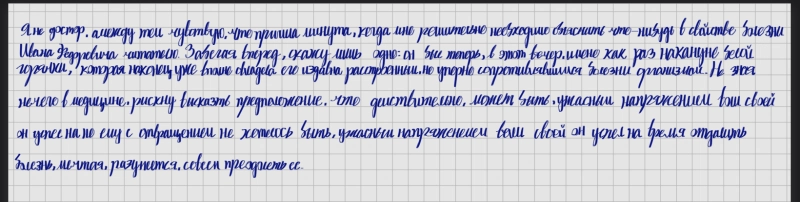 Я не доктор, а между тем чувствую, что пришла минута, когда мне решительно необходимо объяснить что-нибудь в свойстве болезни
Ивана Федоровича читателю. Забегая вперед, скажу лишь одно: он был теперь, в этот вечер, именно как раз накануне белой
горячки, которая наконец уже вполне овладела его издавна расстроенным, но упорно сопротивлявшимся болезни организмом. Не зная
ничего в медицине, рискну высказать предположение, что действительно, может быть, ужасным напряжением воли своей
он успел на но ему с отвращением не хотелось быть, ужасным напряжением воли своей он успел на время отдалить
болезнь, мечтая, разумеется, совсем преодолеть ее.